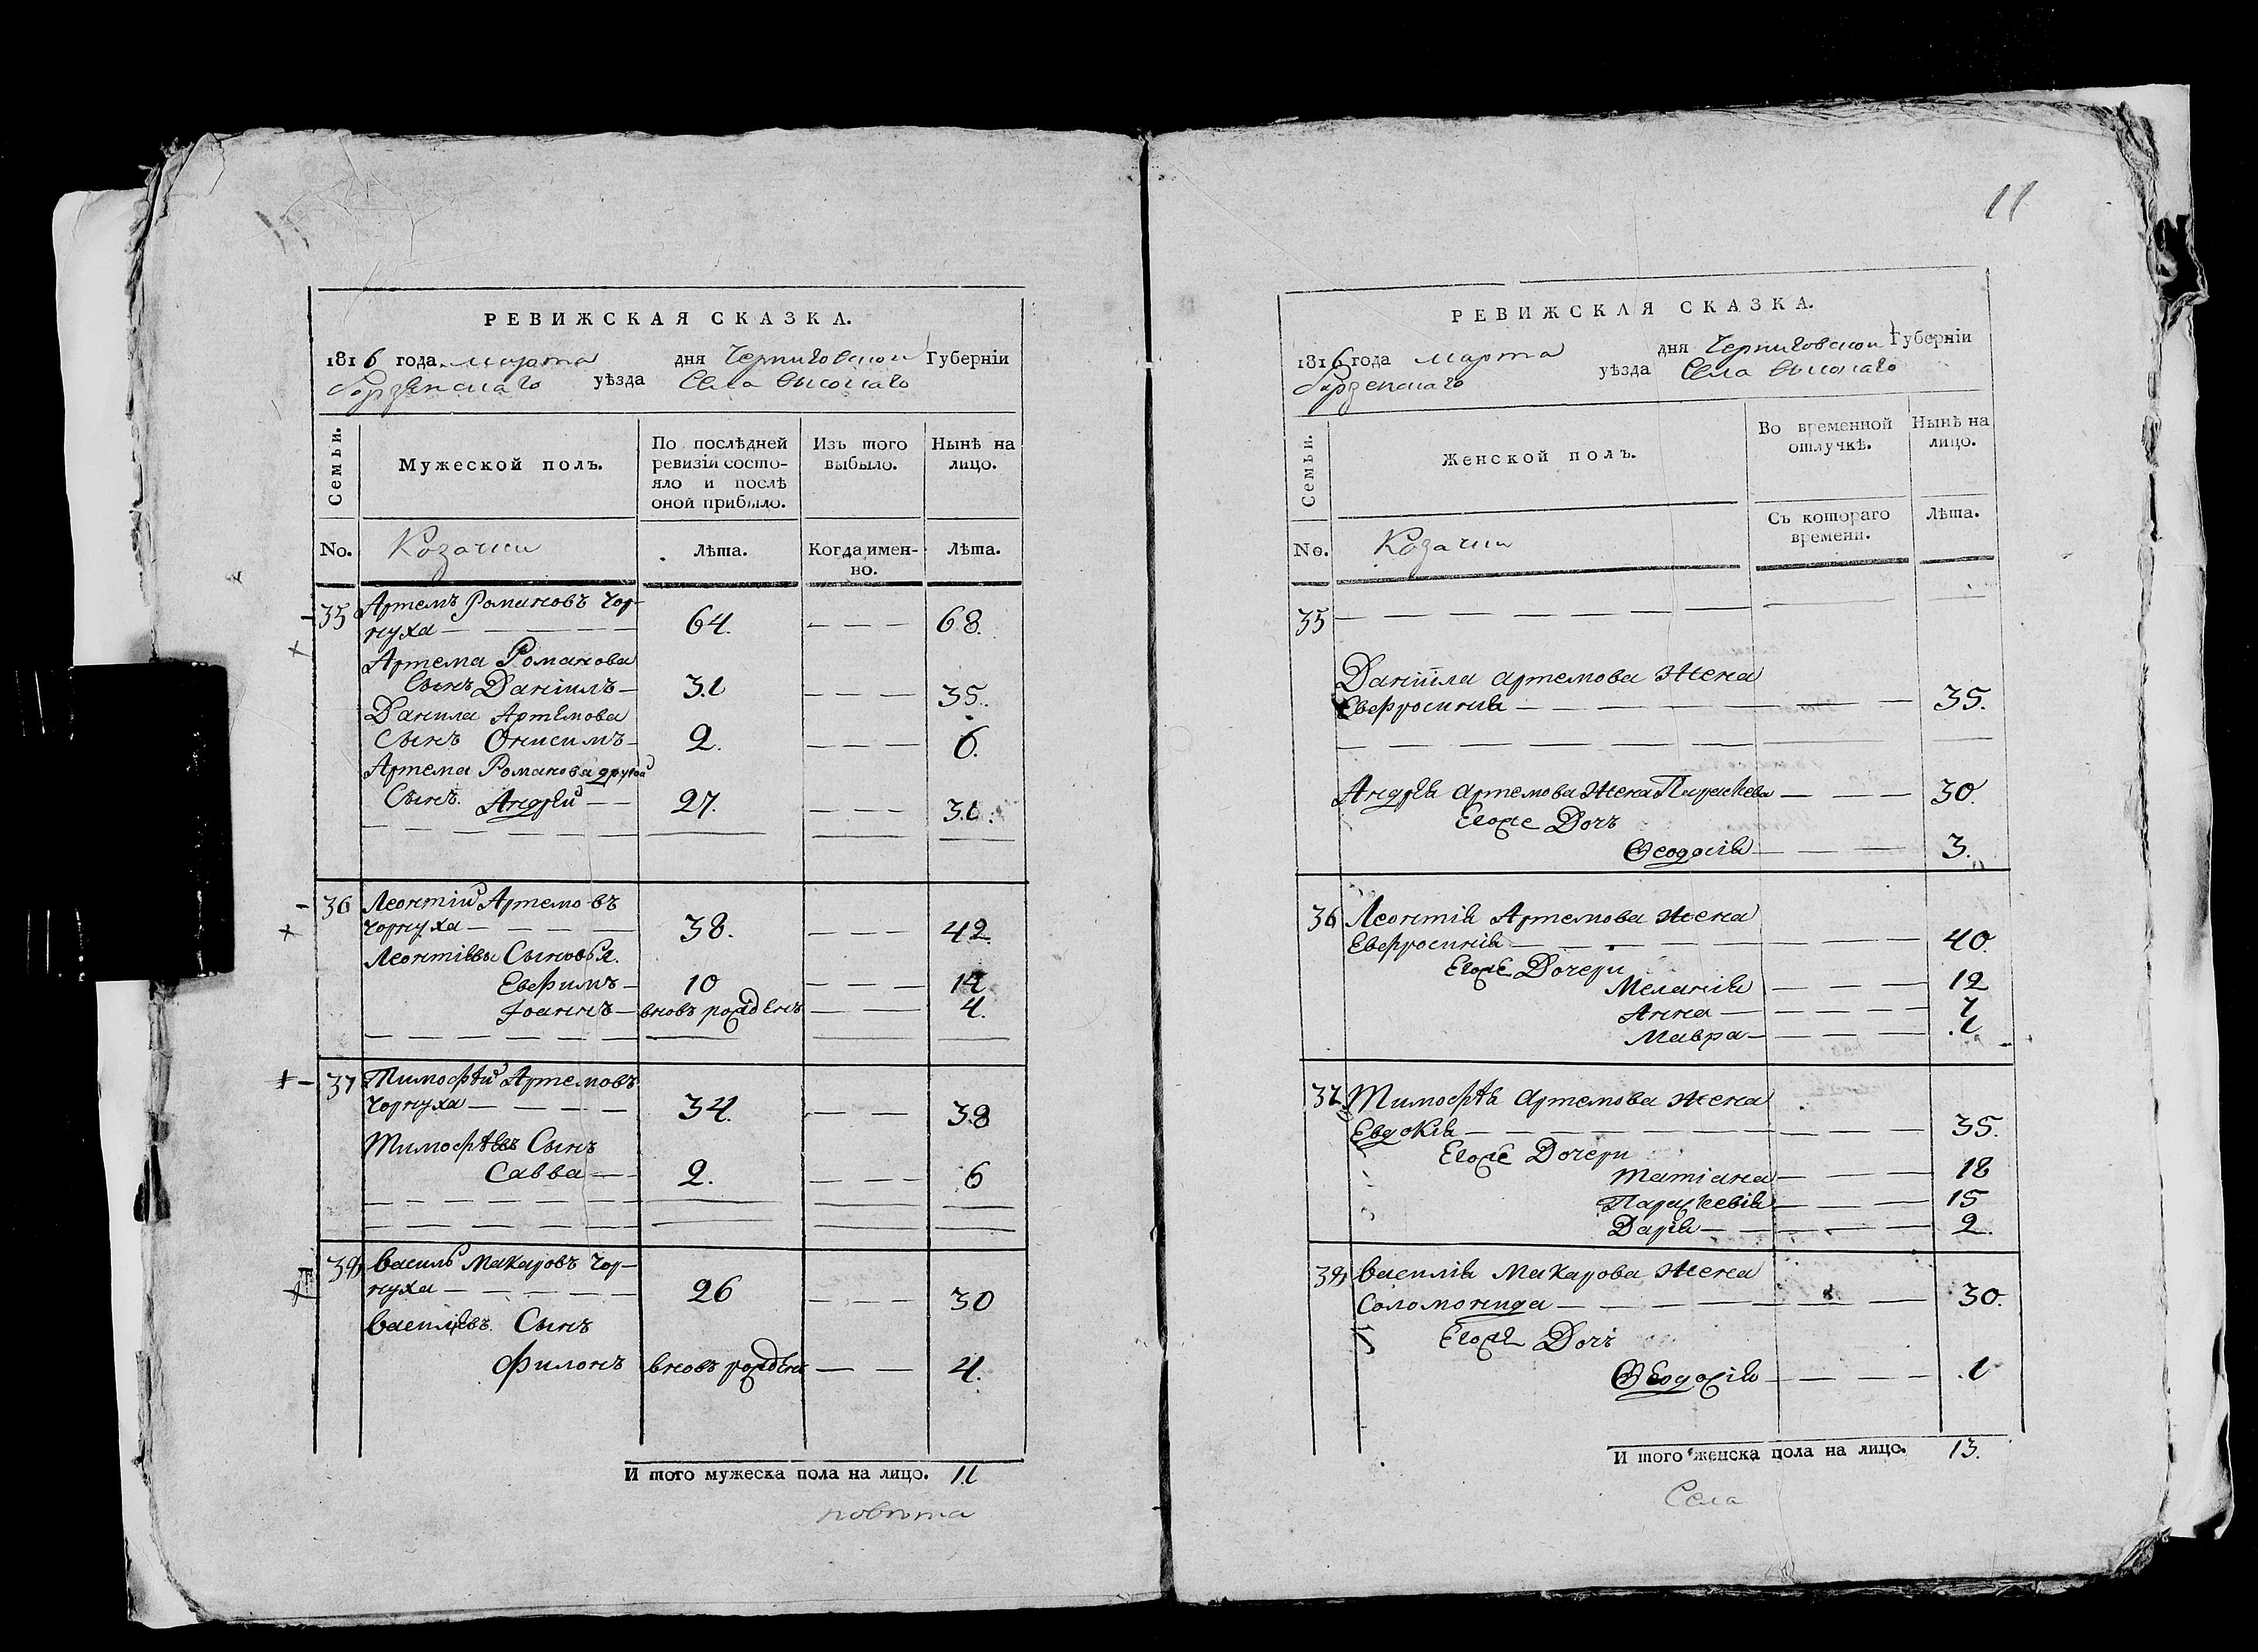 РЕВИЖСКАЯ СКАЗКА.
1816 года марта дня Черниговской Губерніи
уѣзда Села высокаго
Семьи.
Мужеской полъ.
По послѣдней ревизіи состояло и послѣ оной прибыло.
Изъ того выбыло.
Нынѣ на лицо.
No. Козаки Лѣта. Когда именно. Лѣта.
35 Артемъ Романовъ Чор-
нуха — 64. — 68.
Артема Романова
Сынъ Даніилъ — 31 — 35.
Данила Артемова
Сынъ Онисимъ — 2. — 6.
Артема Романова другой
Сынъ. Андрей — 27. — 31.
36 Леонтій Артемовъ
Чорнуха — 38. — 42.
Леонтіевы Сыновья.
Евфимъ — 10 — 14
Іоаннъ — вновь рожденъ — 4.
37 Тимофѣй Артемовъ
Чорнуха — 34. — 38
Тимофѣевъ Сынъ
Савва — 2. — 6
38 Василь Макаровъ Чор-
нуха — 26 — 30
Василіевъ Сынъ
Филонъ вновь рожденъ — 4.
И того мужеска пола на лицо. 11
повѣта
11
РЕВИЖСКАЯ СКАЗКА.
1816 года марта дня Черниговской Губерніи
уѣзда Села высокаго
Семьи.
Женской полъ.
Во временной отлучкѣ.
Нынѣ на лицо.
No. Козачки Съ котораго времени. Лѣта.
35 —
Даніила Артемова жена
Евфросинія — 35.
Андрея Артемова жена Параскева — 30.
Егоже Дочь
Ѳеодосія — 3.
36 Леонтія Артемова жена
Евфросинія — 40.
Егоже Дочери
Меланія — 12
Анна — 7
Мавра — 1
37 Тимофѣя Артемова жена
Евдокія — 35.
Егоже Дочери
Татіана — 18
Параскевія — 15
Дарія — 2.
38 Василія Макарова жена
Соломонида — 30.
Егоже Дочь
Ѳеодосія — 1
И того женска пола на лицо. 13.
Села